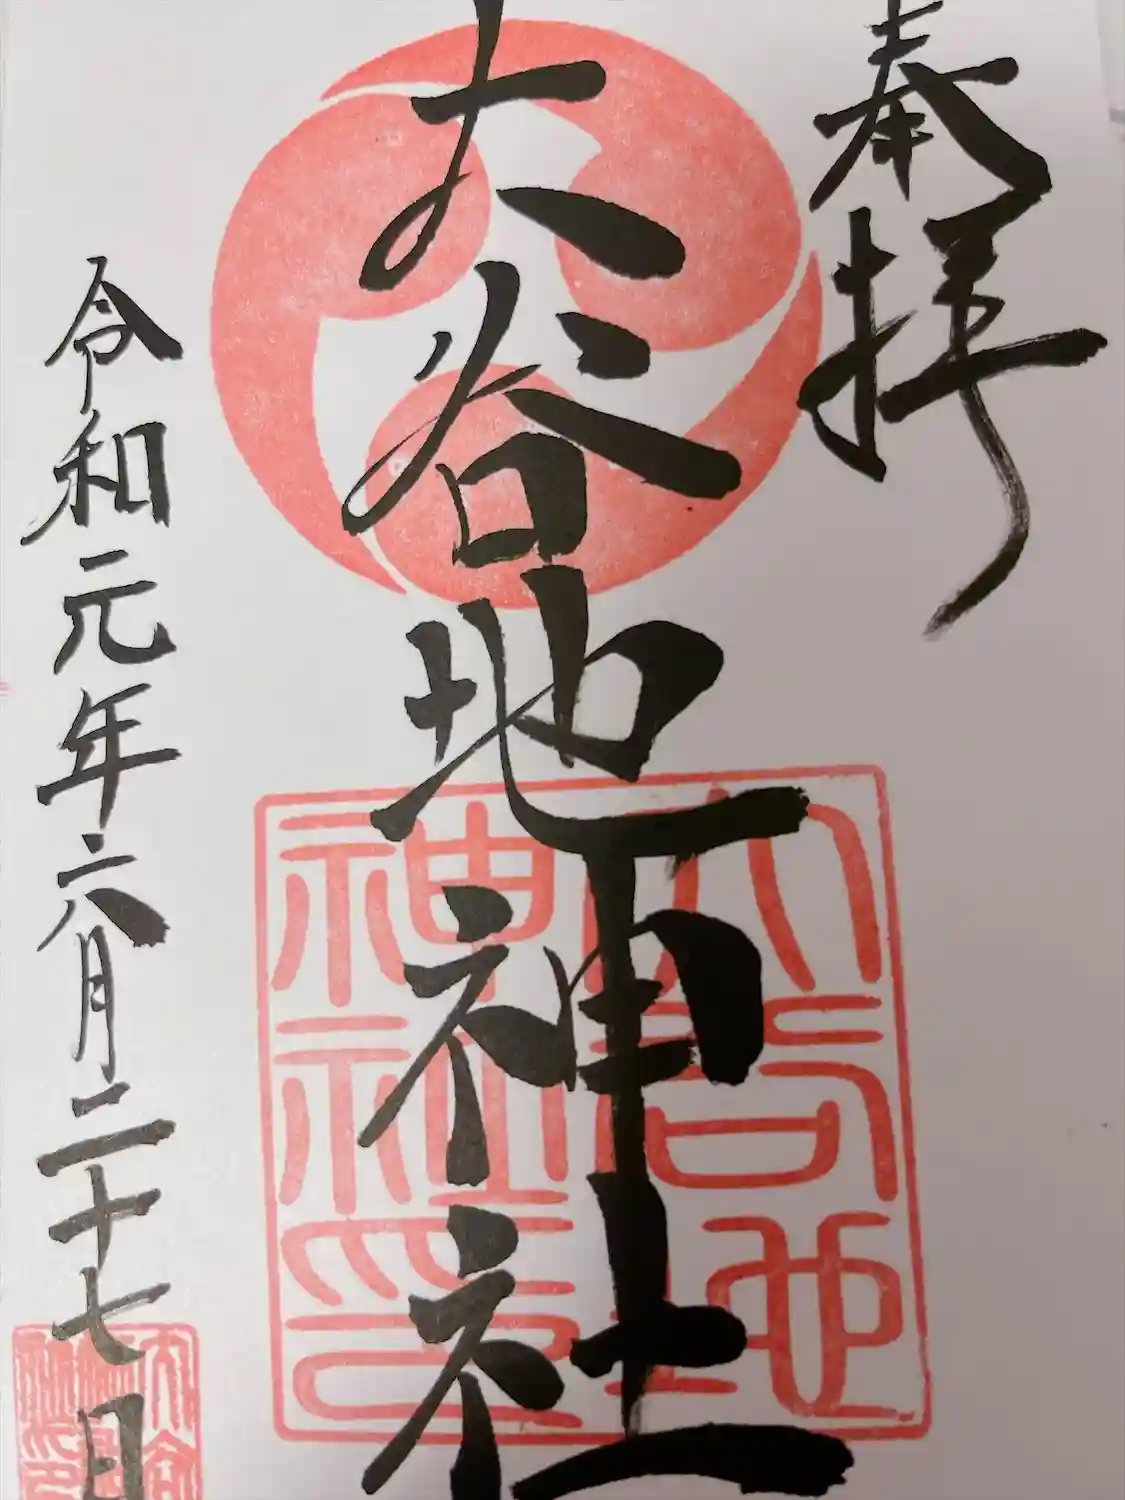 奉拝
大谷地神社
大谷地神社印
令和元年六月二十七日